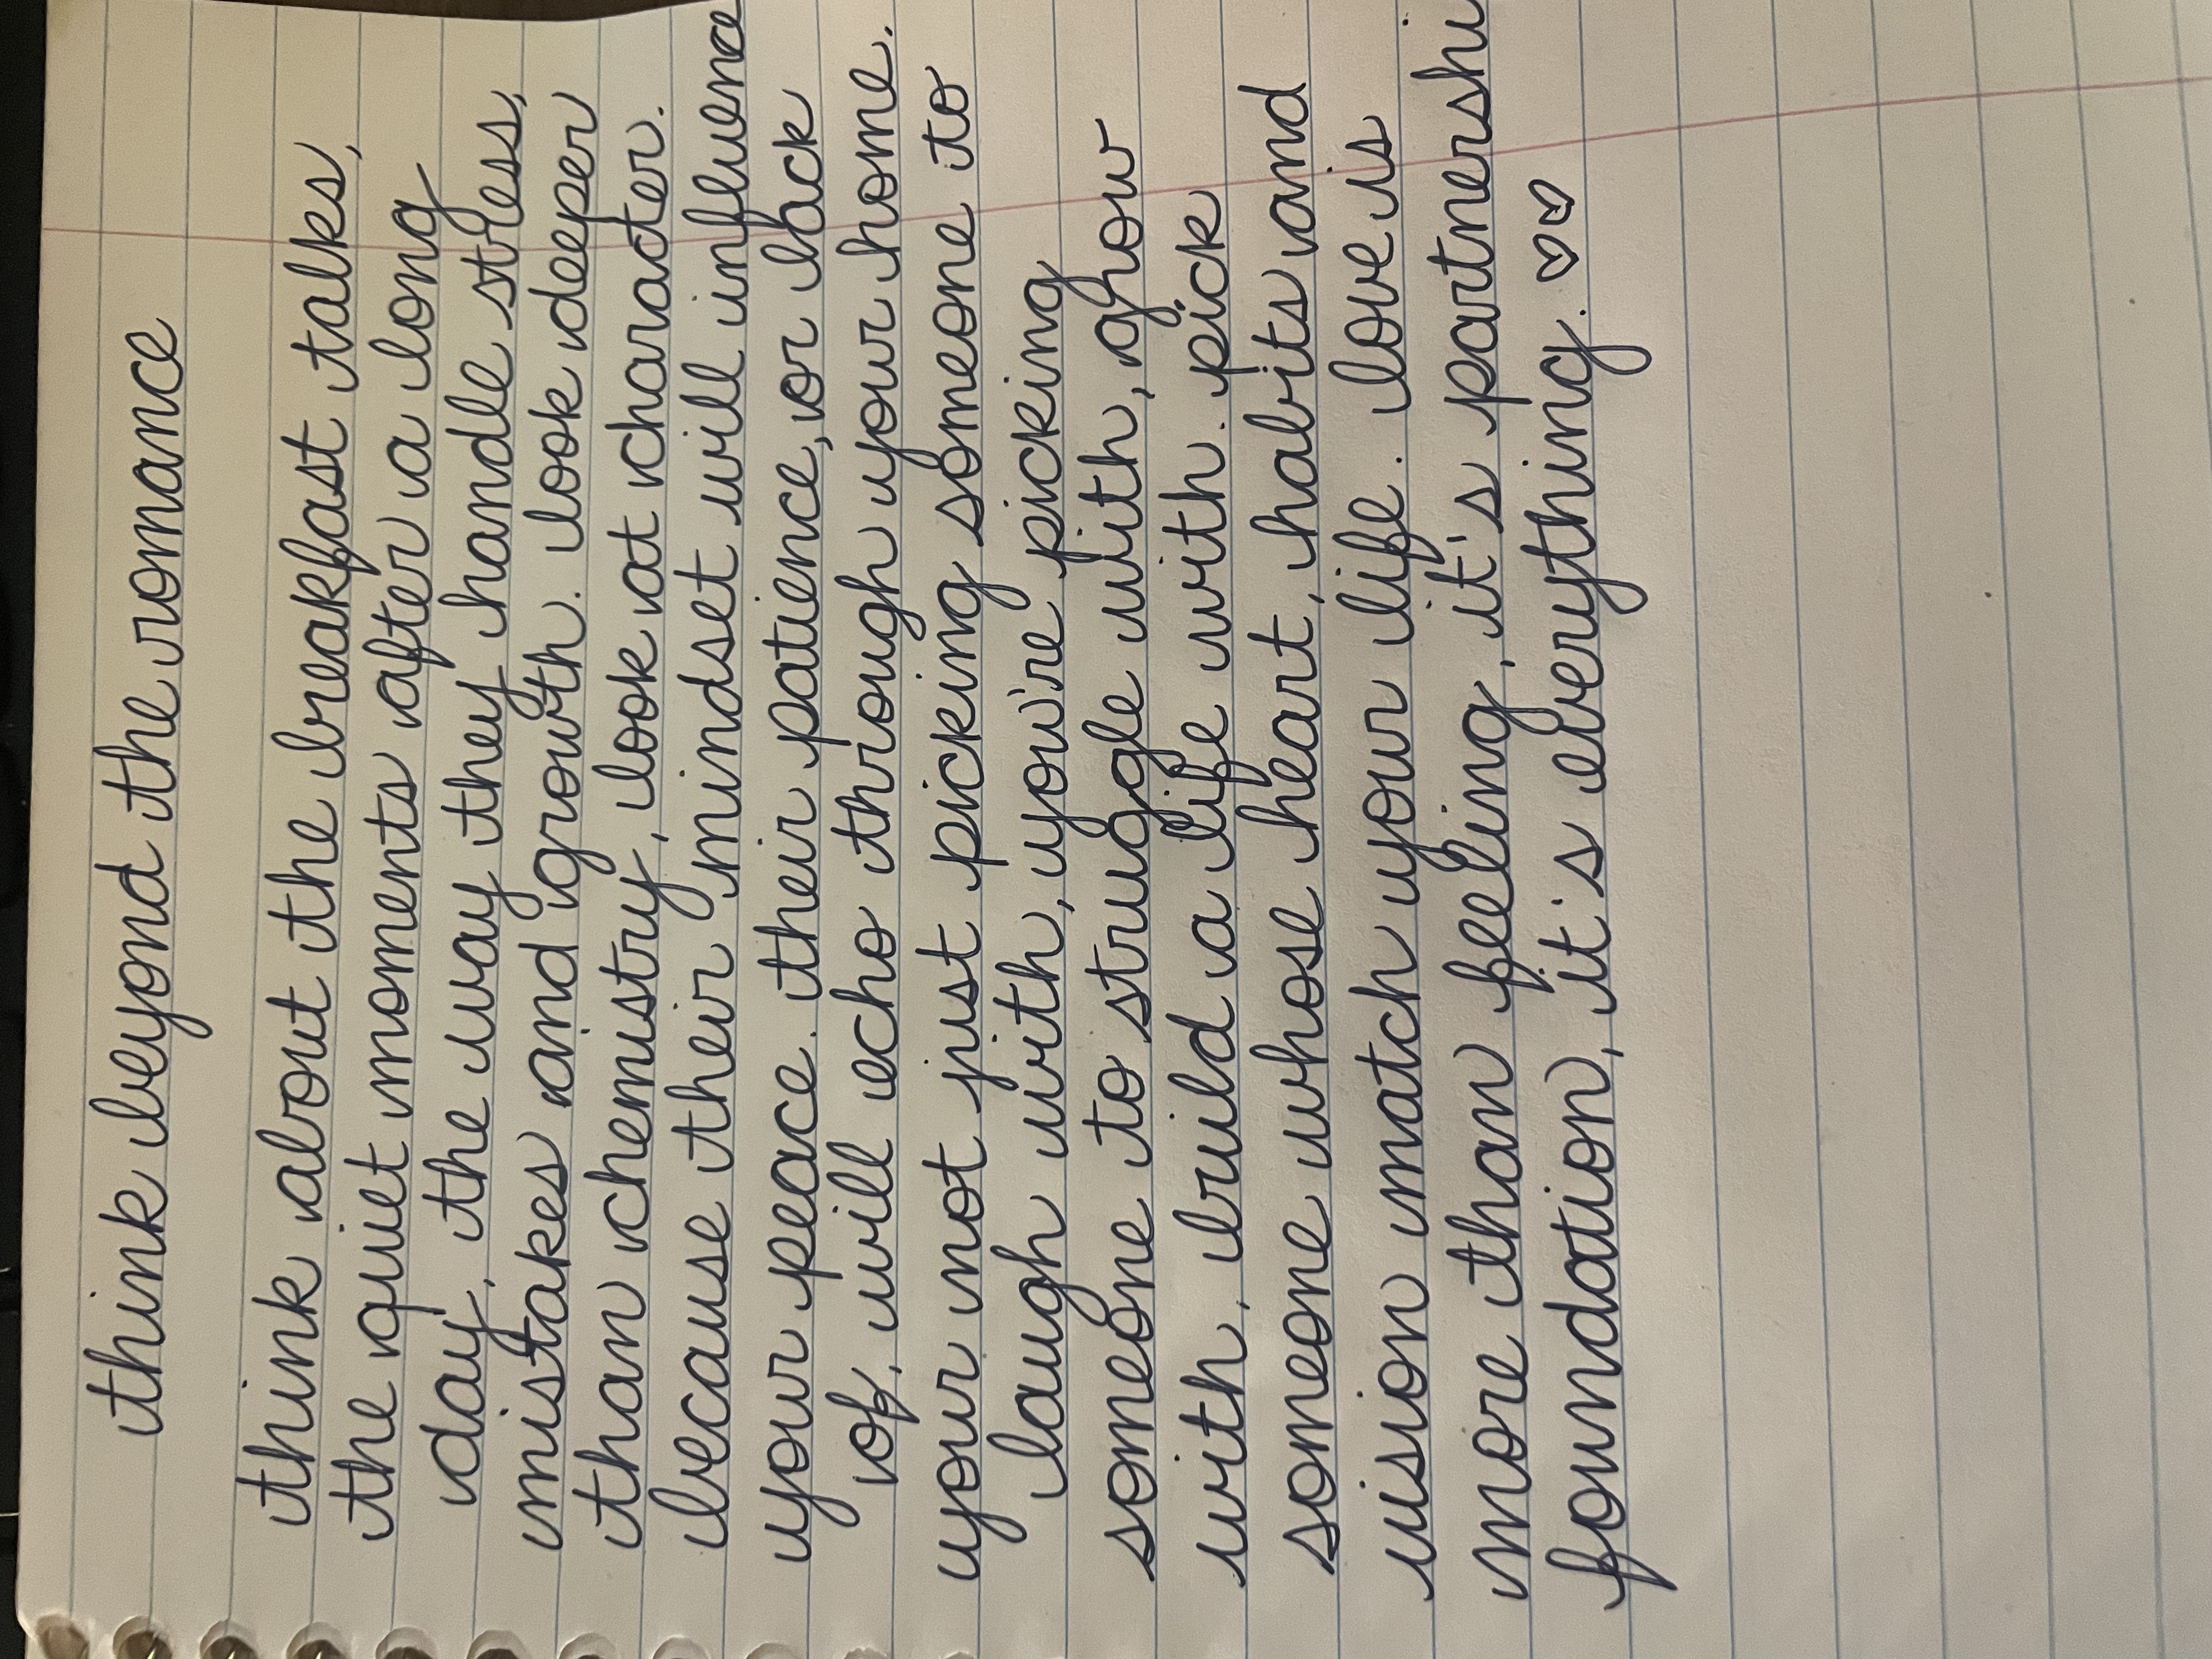 think beyond the romance
think about the breakfast talks,
the quiet moments after a long
day, the way they handle stress,
mistakes and growth. look deeper
than chemistry, look at character.
because their mindset will influence
your peace. their patience, or lack
of, will echo through your home.
your not just picking someone to
laugh with, you're picking
someone to struggle with, grow
with, build a life with. pick
someone whose heart, habits and
vision match your life. love is
more than feeling, it's partnershi
foundation, it's everything. ♡♡